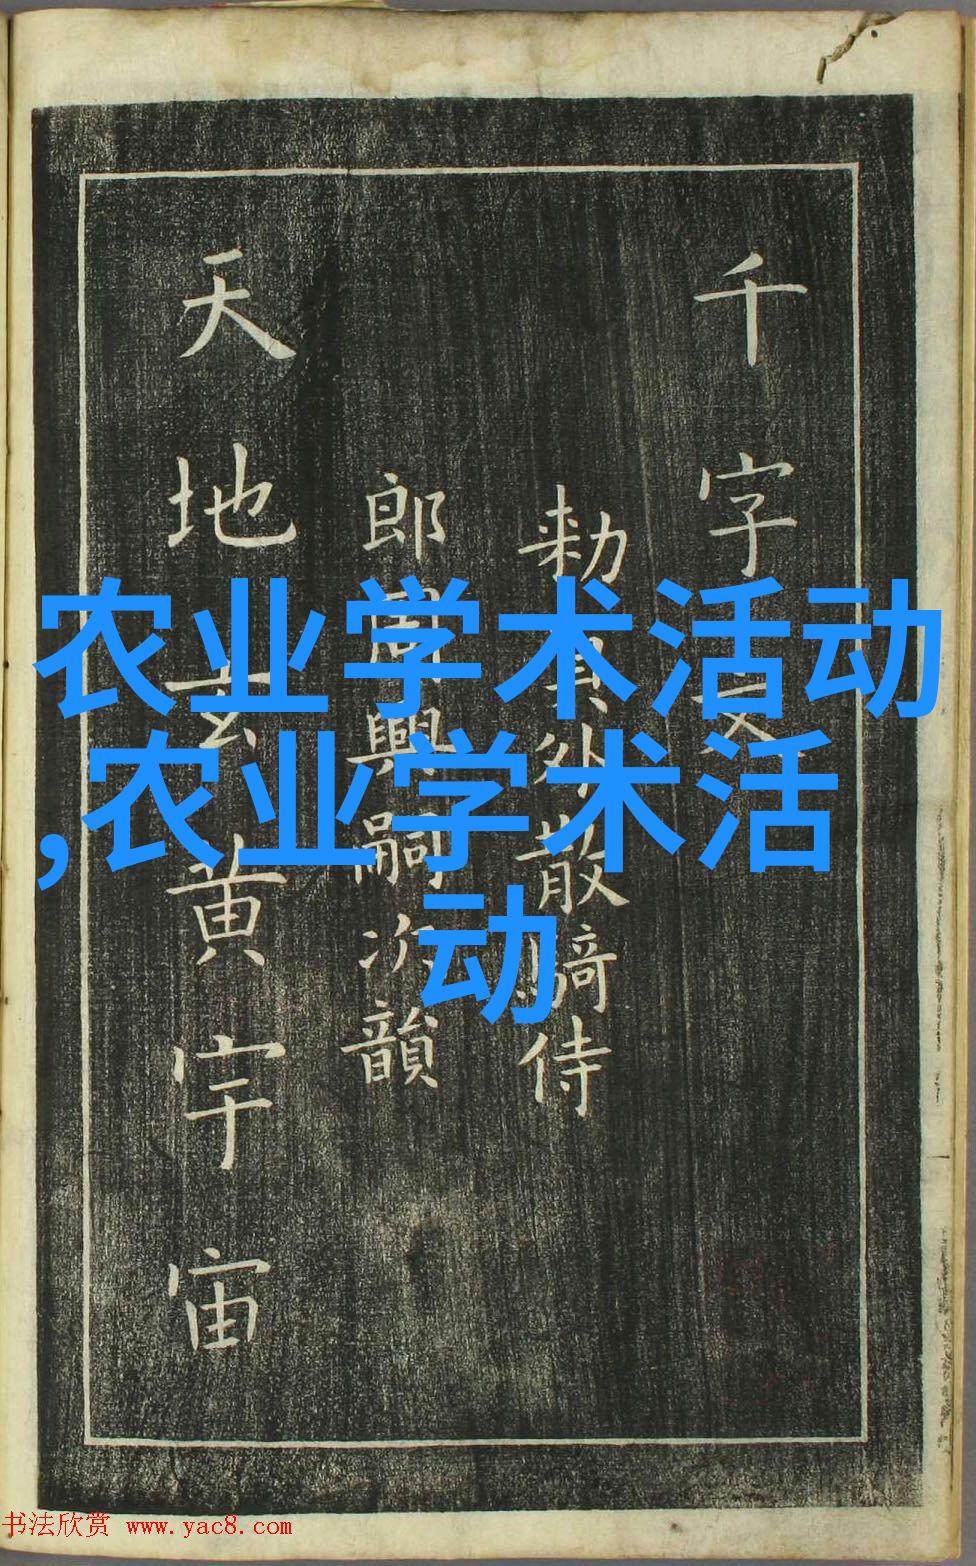 千字文
勑員外散騎侍
郎周興嗣次韻
天地玄黄宇宙
农业学术活动
,农业学术活
动
书法欣赏 www.yac8.com